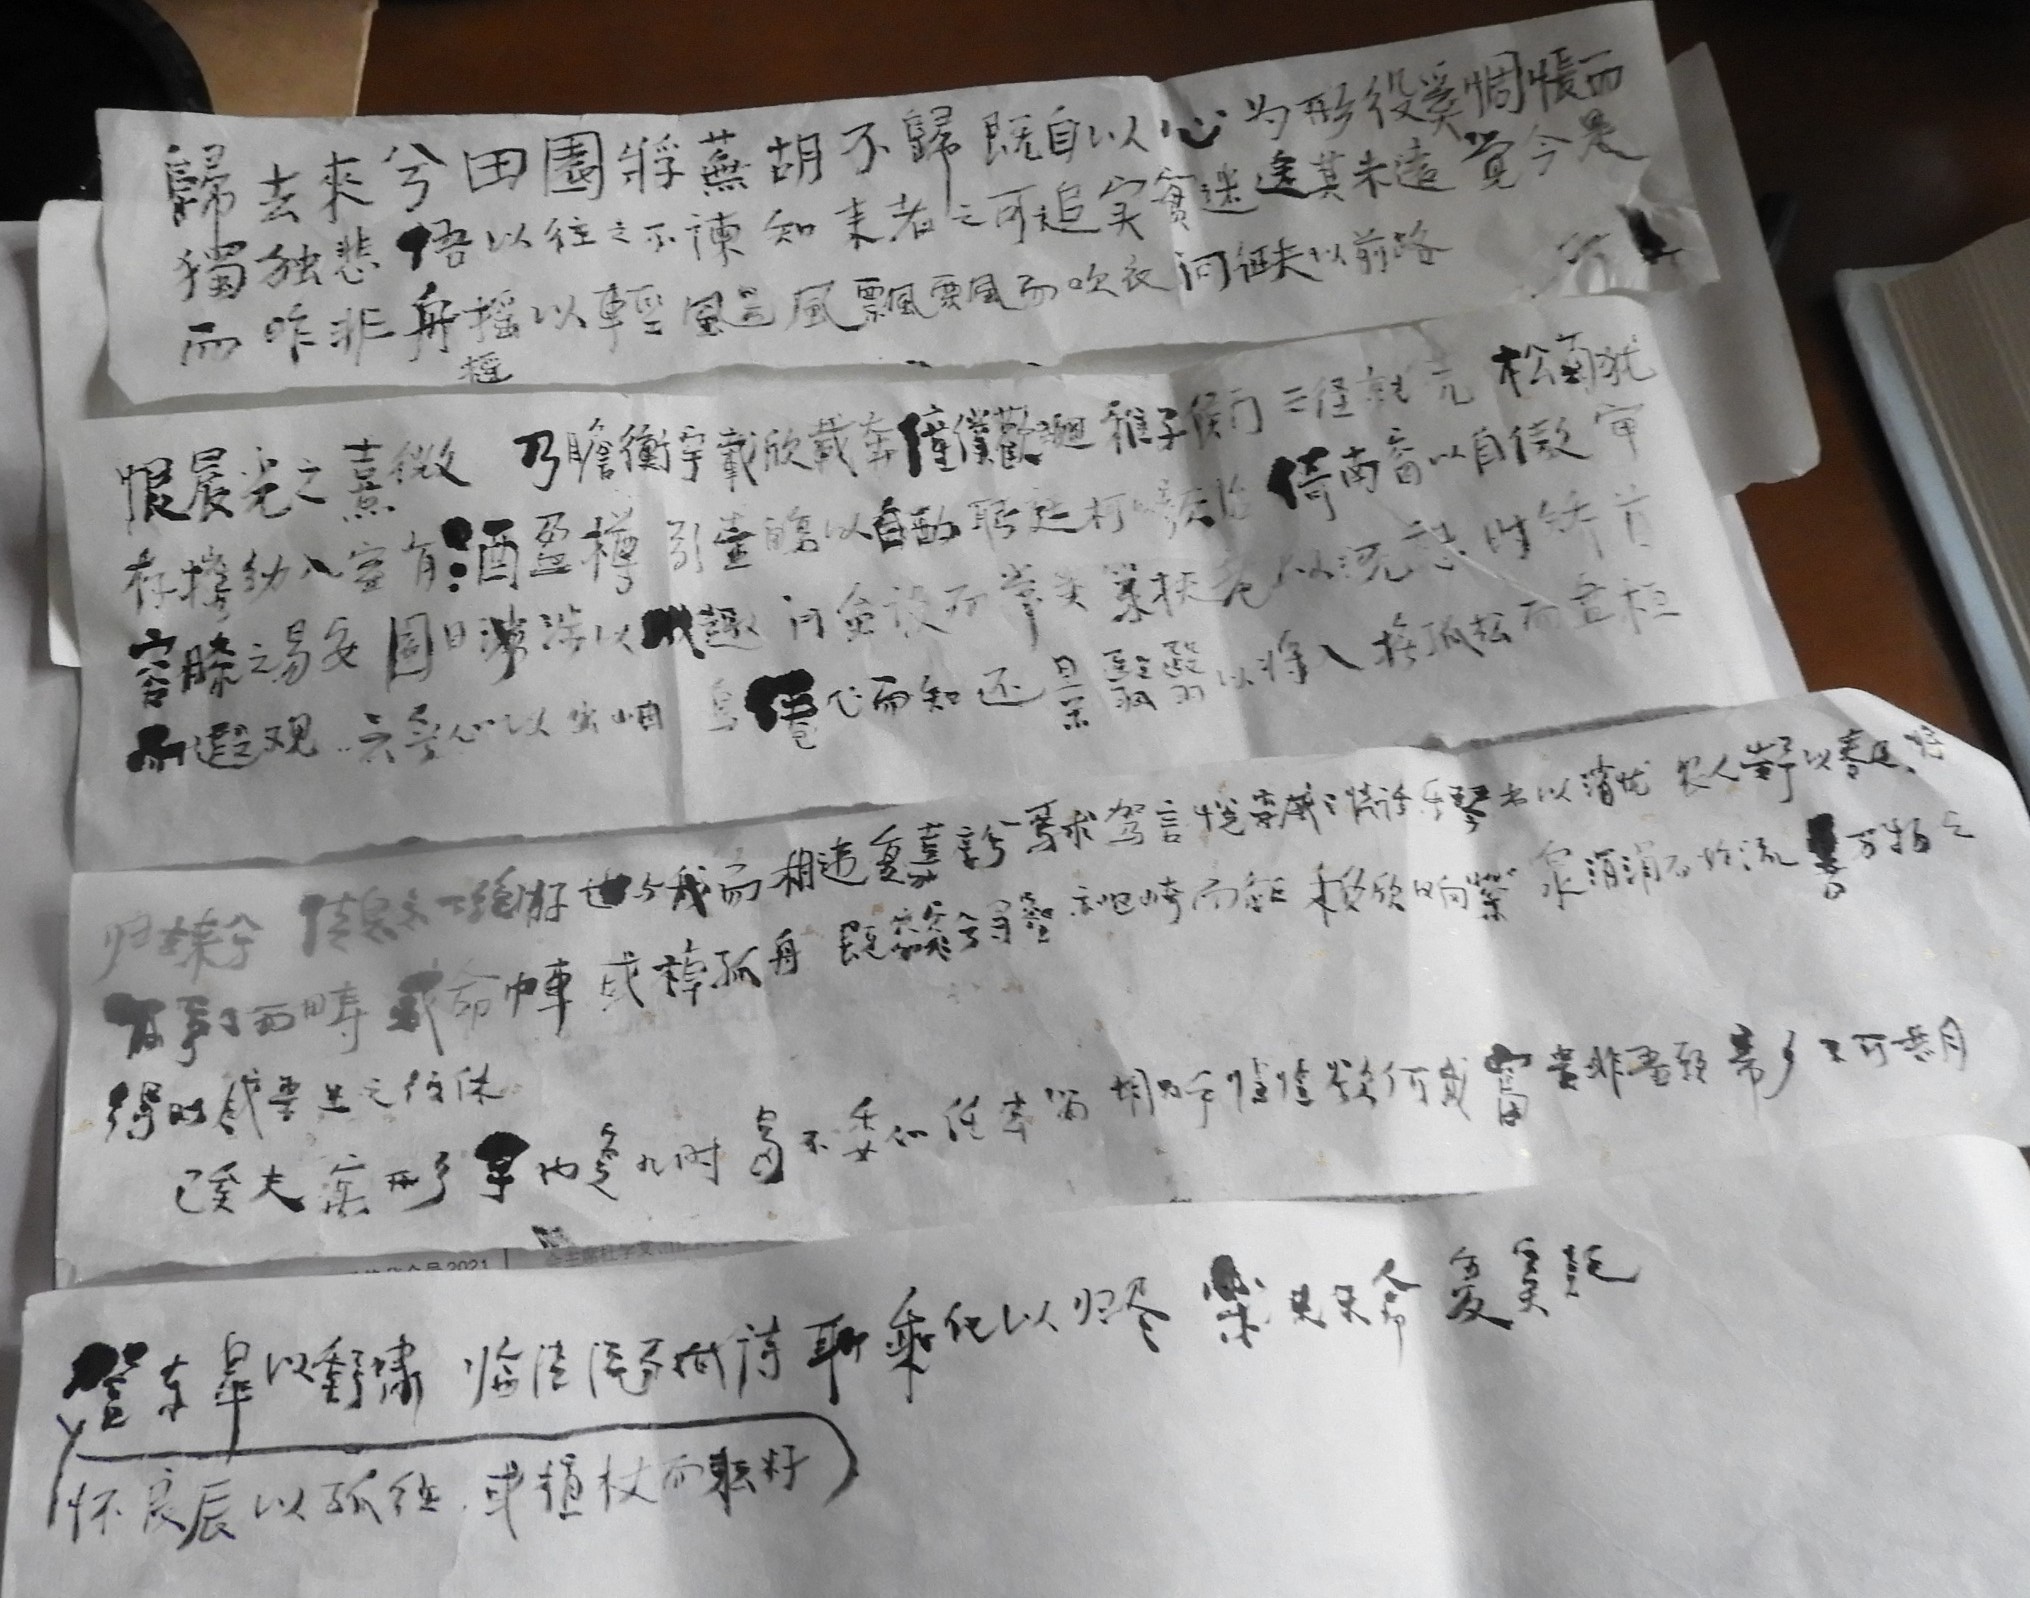 歸去來兮田園將蕪胡不歸既自以心为形役奚惆悵而
獨独悲悟以往之不諫知来者之可追实實迷途其未遠覚今是
而昨非舟摇以輕颺風飄飄而吹衣问征夫以前路
摇
恨晨光之熹微 乃瞻衡宇載欣載奔僮僕歡迎稚子候门三径就荒松菊犹
存携幼入室有酒盈樽引壶觞以自酌眄庭柯以怡颜倚南窗以自傲审
容膝之易安園日涉以成趣门虽设而常关策扶老以流憩时矫首
而遐观云无心以出岫鸟倦飞而知还景翳翳以将入抚孤松而盘桓
归去来兮请息交以绝游世与我而相违复驾言兮焉求驾言悦亲戚之情话乐琴书以消忧农人告予以春及将
有事于西畴或命巾車或棹孤舟既窈窕兮寻壑亦崎岖而经丘木欣欣向荣泉涓涓而始流善万物之
得时感吾生之行休
已矣夫寓形宇内复几时曷不委心任去留胡为乎遑遑欲何之富贵非吾願帝乡不可期
2021
登东皋以舒啸 临清流而赋诗聊乘化以归尽乐夫天命复奚疑
怀良辰以孤往 或植杖而耘籽